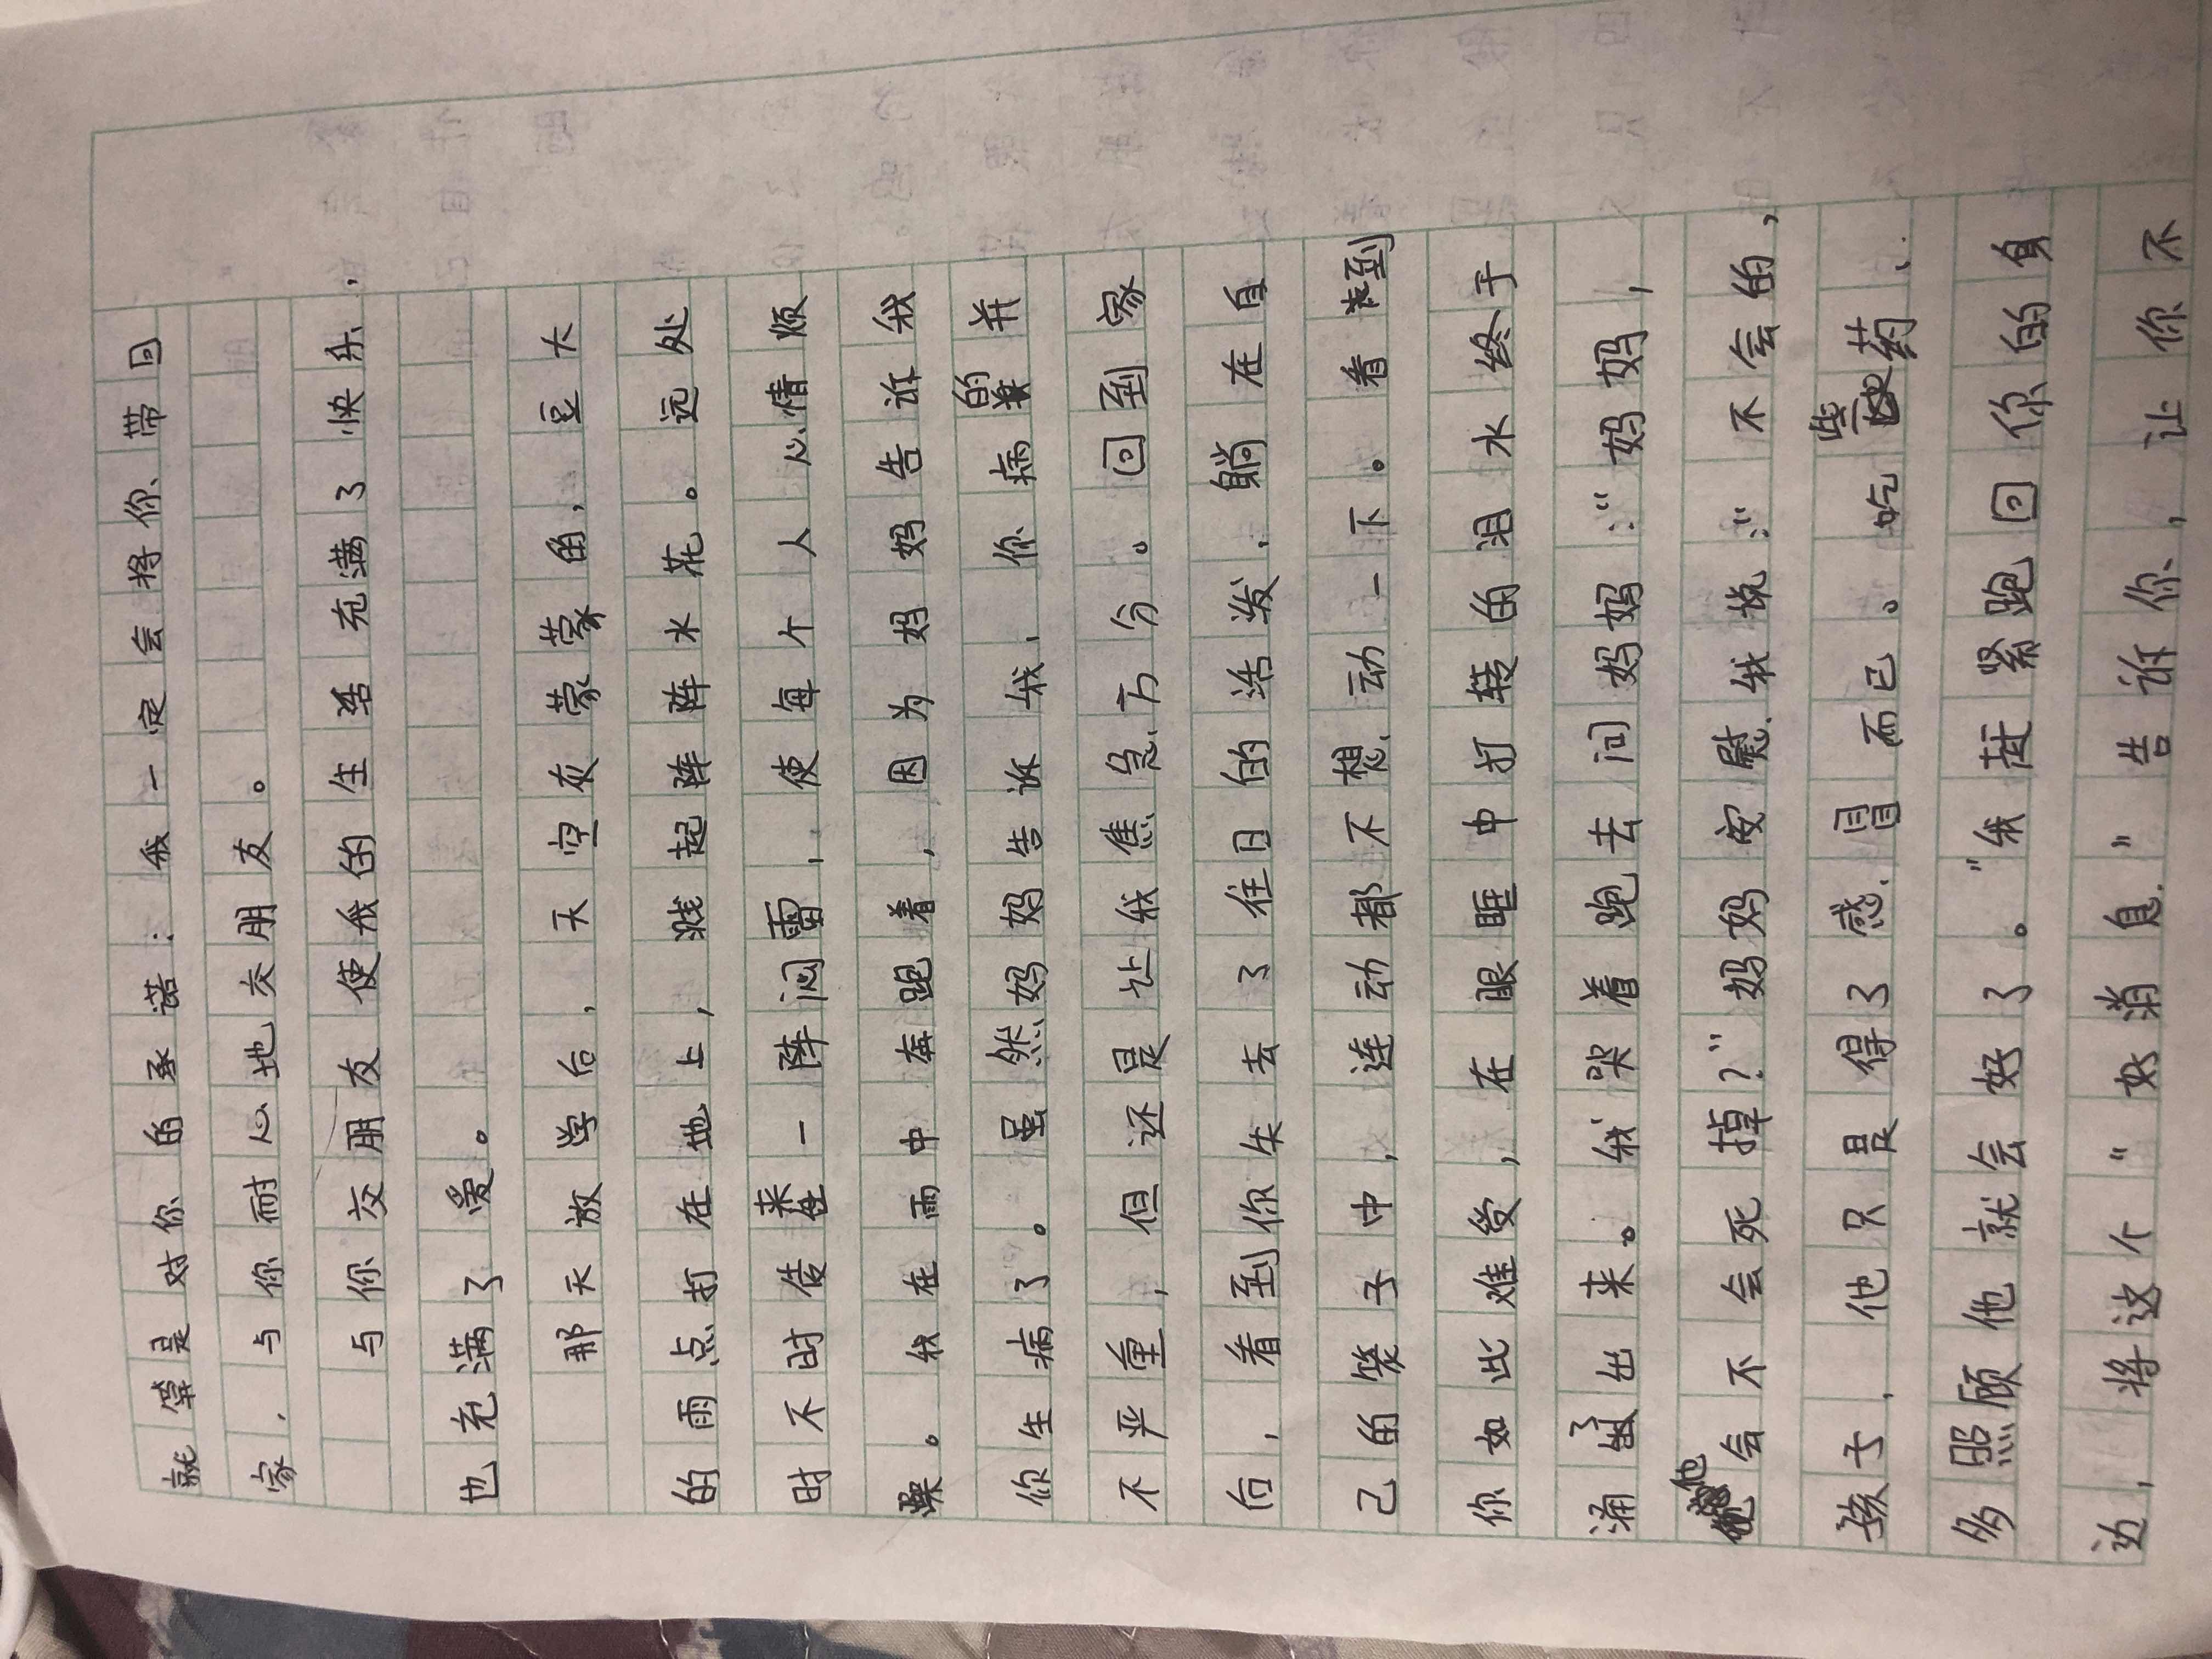 就算是对你的承诺：我一定会将你带回
家，与你耐心地交朋友。
与你交朋友使我的生活充满了快乐，
也充满了爱。
那天放学后，天空灰蒙蒙的，豆大
的雨点打在地上，溅起阵阵水花。远处
时不时传来一阵闷雷，使每个人心情烦
躁。我在雨中奔跑着，因为妈妈告诉我
你生病了。虽然妈妈告诉我，你病的并
不严重，但还是让我焦急万分。回到家
后，看到你失去了往日的活泼，躺在自
己的笼子中，连动都不想动一下。看到
你如此难受，在眼眶中打转的泪水终于
涌了出来。我哭着跑去问妈妈：“妈妈，
他会不会死掉？”妈妈安慰我说：“不会的，
孩子，他只是得了感冒而已。吃些药、
多照顾他就会好了。”我赶紧跑回你的身
边，将这个“好消息”告诉你，让你不